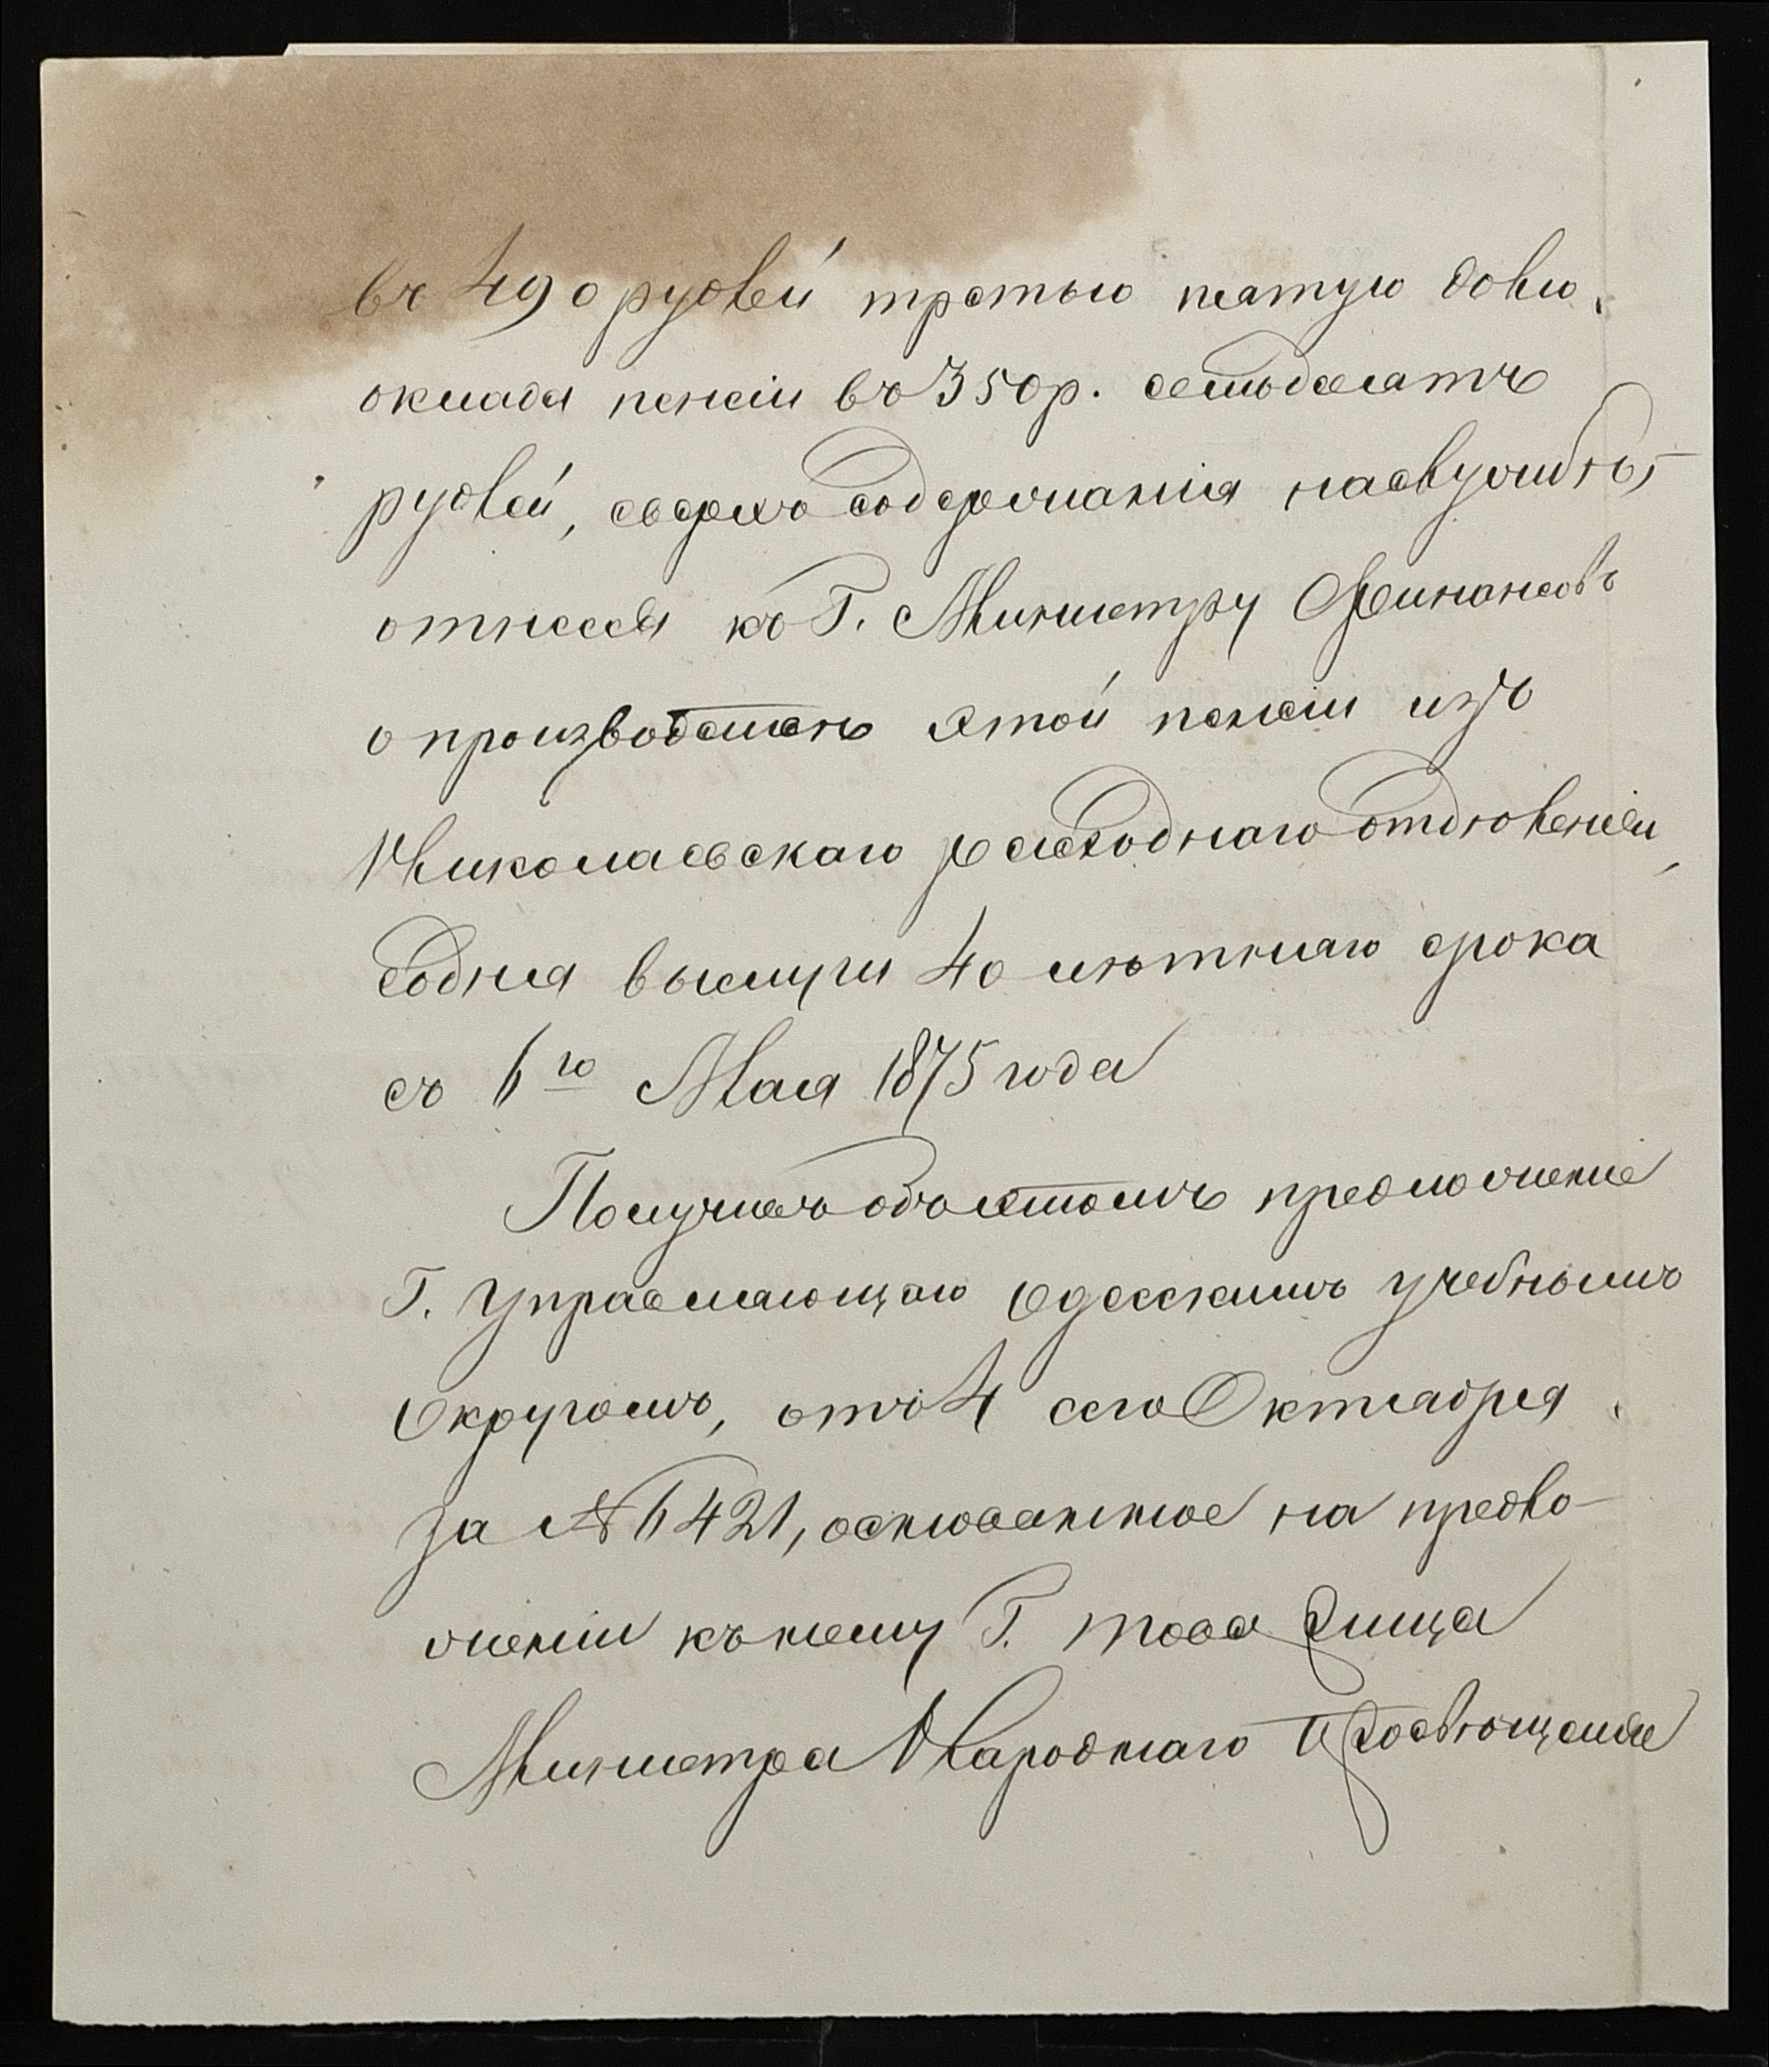 въ 490 рублей третью пятую долю
оклада пенсіи въ 350 р. семьдесятъ
рублей, сверхъ содержанія на службѣ,
отнесся къ Г. Министру Финансовъ
о производствѣ этой пенсіи изъ
Николаевскаго расходнаго отдѣленія,
со дня выслуги 40 лѣтняго срока
съ 6го Мая 1875 года
Получивъ объ этомъ предложеніе
Г. Управляющаго Одесскимъ учебнымъ
Округомъ, отъ 4 сего Октября
за № 6421, основанное на предло-
женіи къ нему Г. Товарища
Министра Народнаго Просвѣщенія